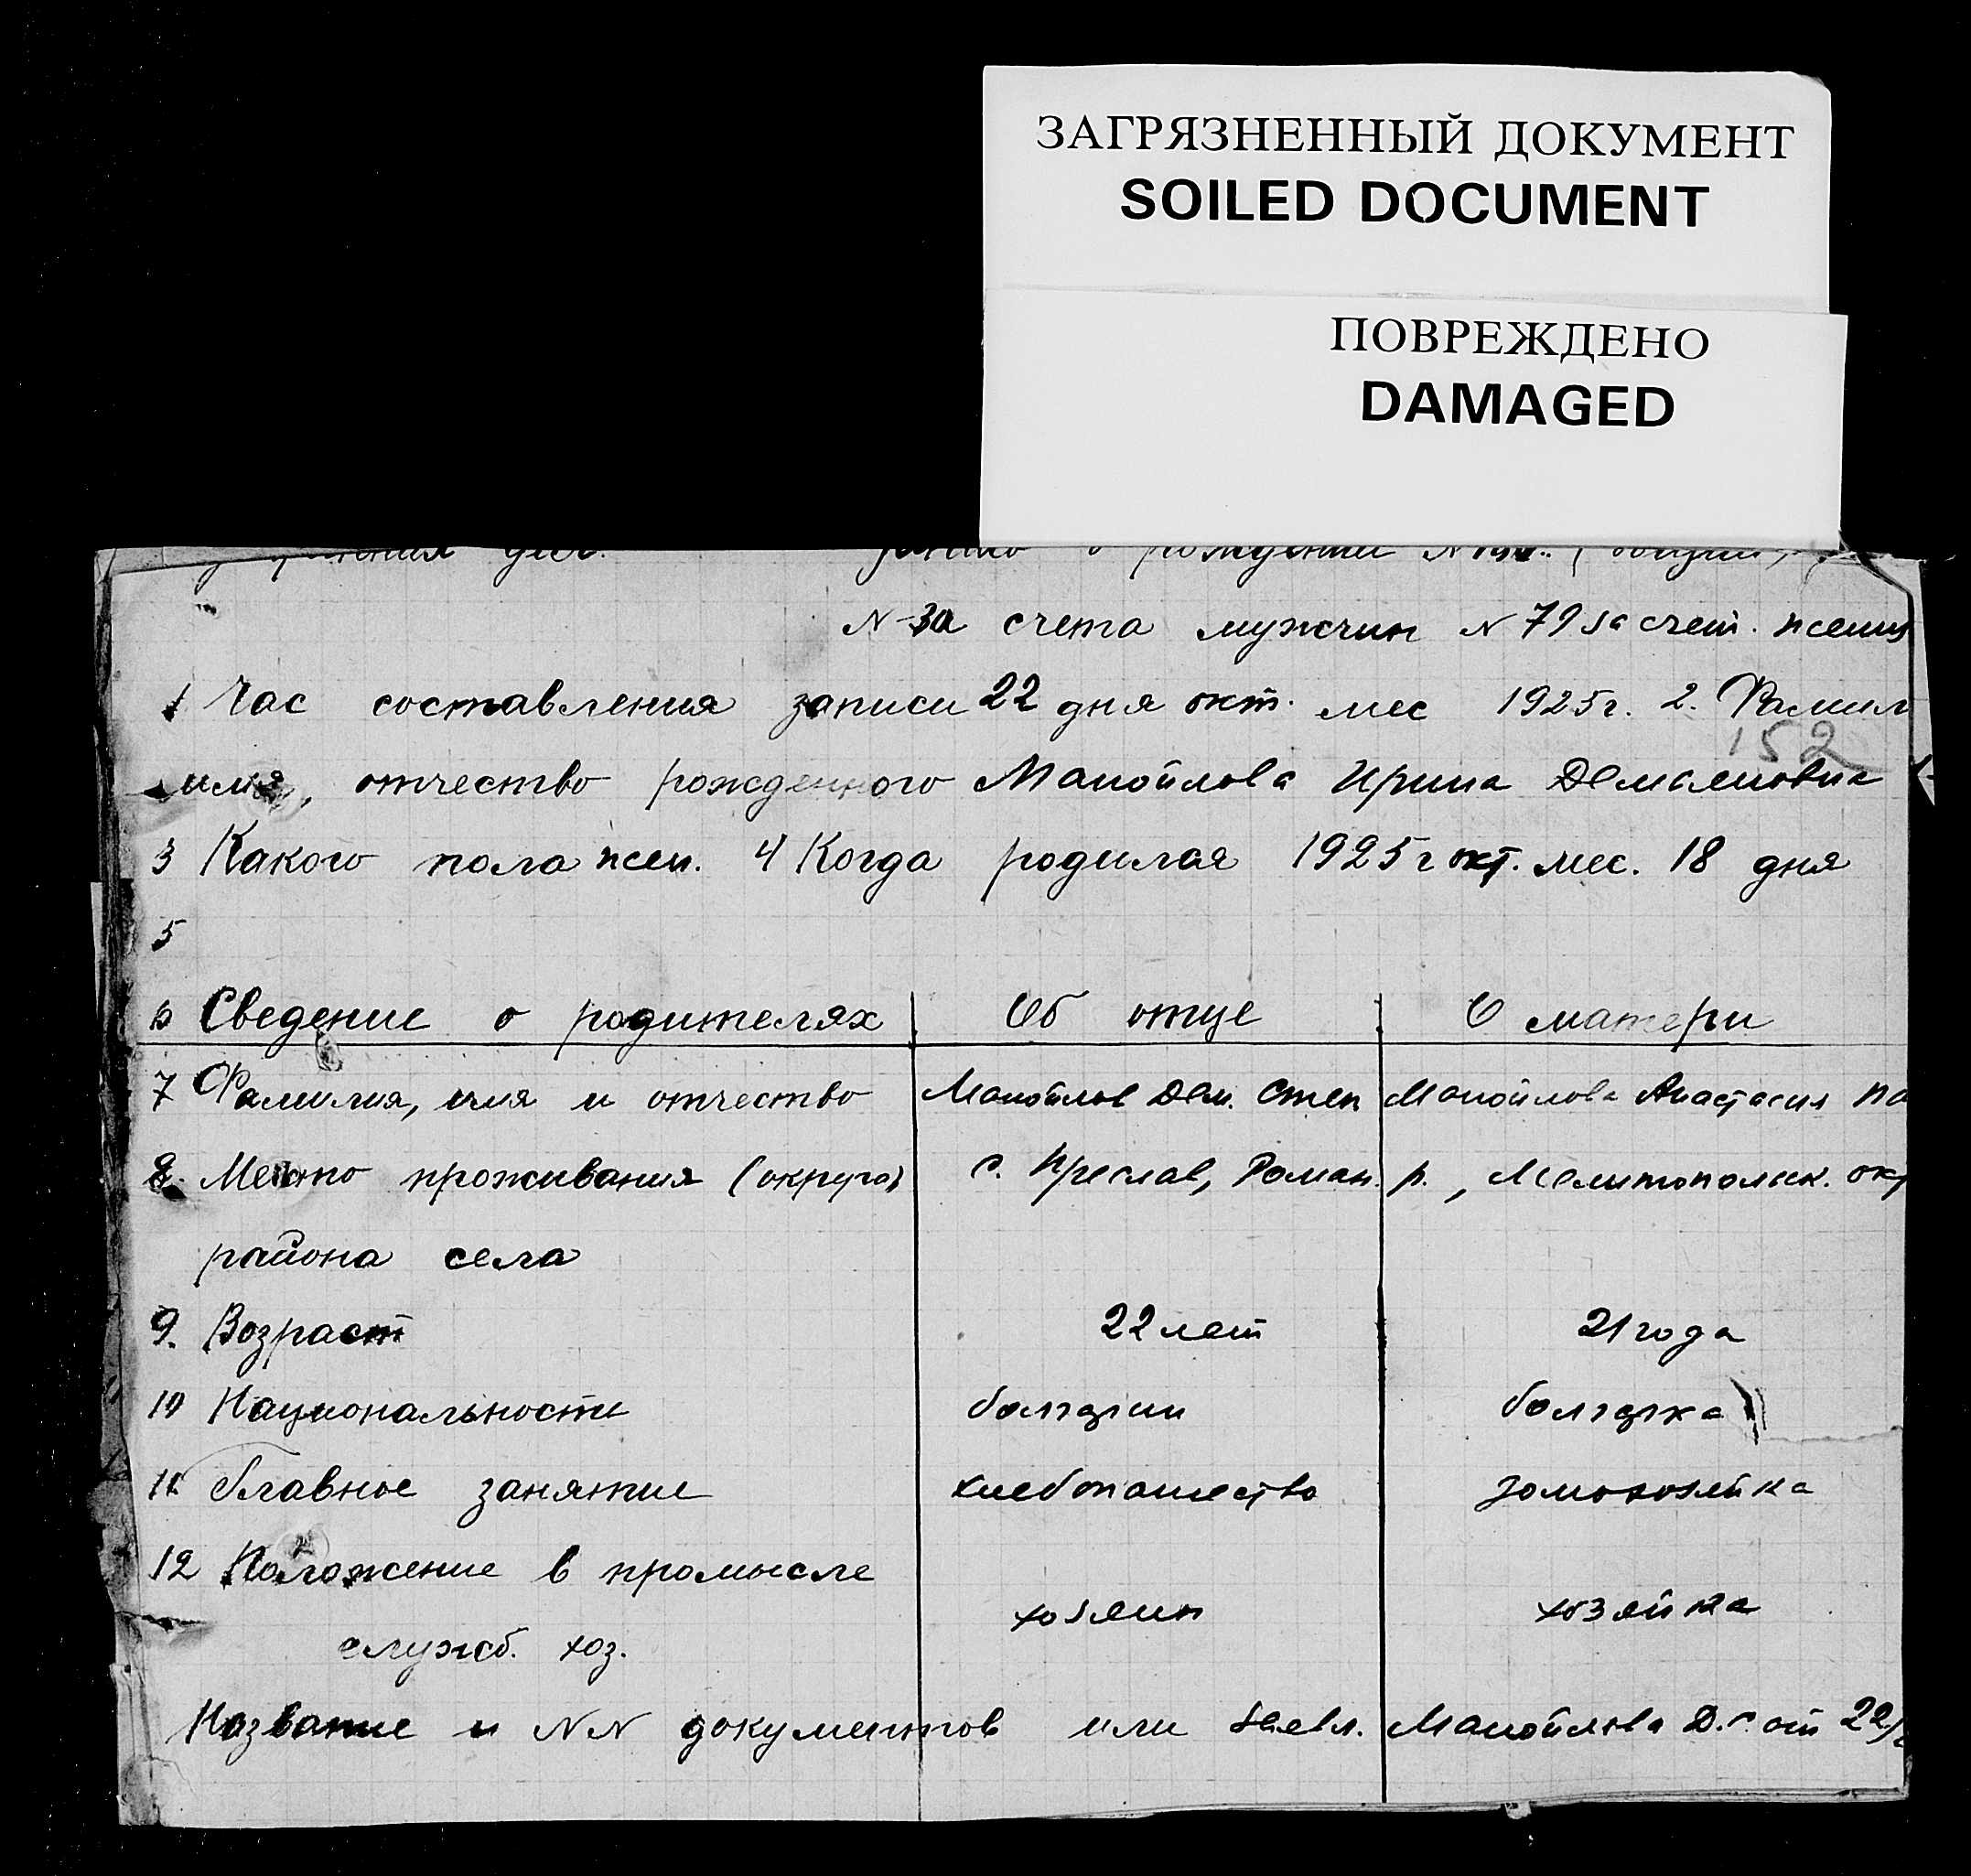 ЗАГРЯЗНЕННЫЙ ДОКУМЕНТ
SOILED DOCUMENT
ПОВРЕЖДЕНО
DAMAGED
о рождении
N за счета мужчин N 79 за счет. женщ
1 Час составления записи 22 дня окт. мес 1925 г. 2. Фамил
152
имя, отчество рожденного Манойлова Ирина Демьяновна
3 Какого пола жен. 4 Когда родилая 1925 г окт. мес. 18 дня
5
6 Сведение о родителях Об отце О матери
7 Фамилия, имя и отчество Манойлов Дем. Степ Манойлова Анастасия Па
8. Место проживания (округа) с. Преслав, Роман. р., Мелитопольск. окр
района села
9. Возраст 22 лет 21 года
10 Национальности болгарин болгарка
11 Главное занятие хлебопашество домохозяйка
12 Положение в промысле
хозяин хозяйка
служб. хоз.
Название и NN документов или заявл. Манойлова Д.С. от 22/